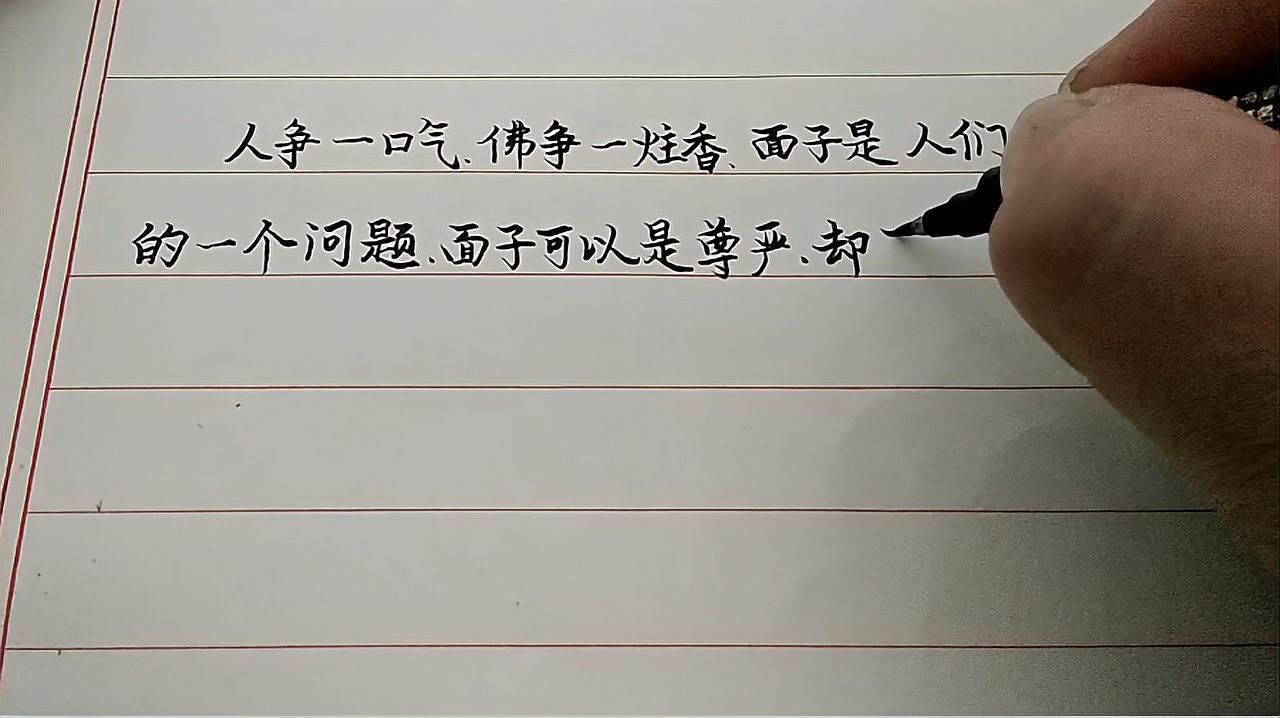 人争一口气、佛争一炷香、面子是人们
的一个问题、面子可以是尊严、却